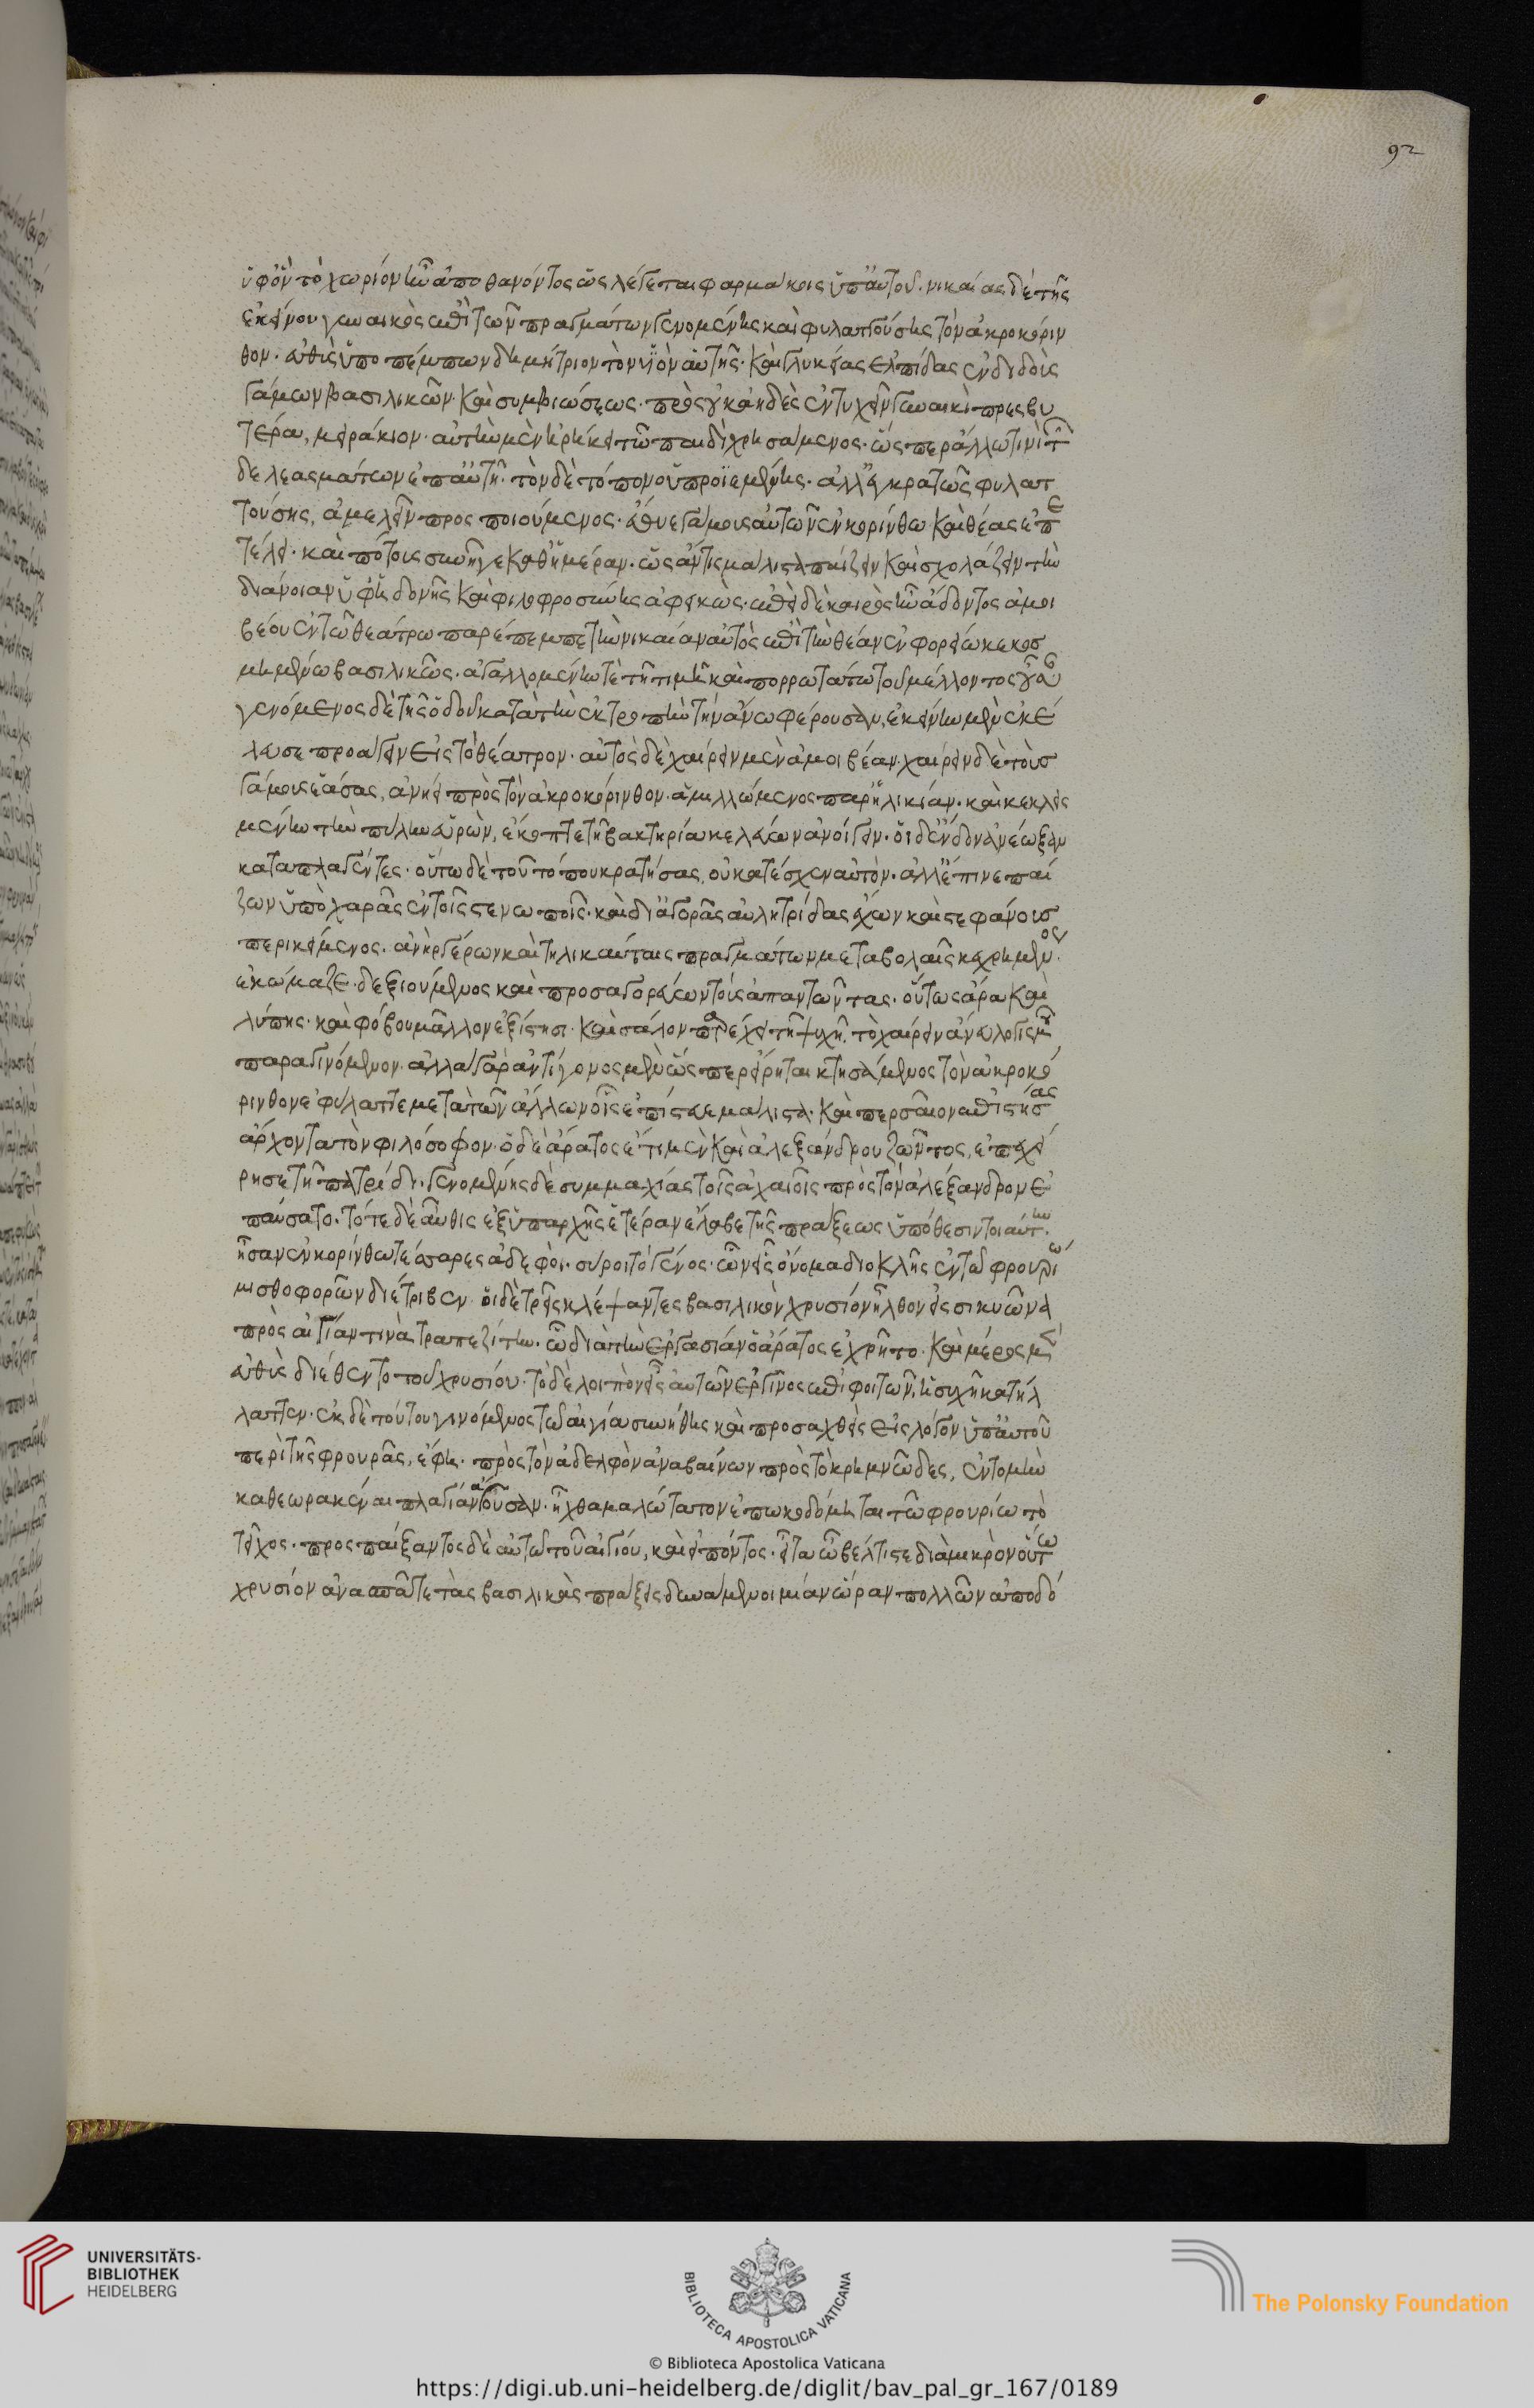 92
ὑφ' ὃν τὸ χωρίον ἦν ἀποθανόντος ὡς λέγεται φαρμάκοις ὑπ' αὐτοῦ. νικαίας δὲ τῆς
ἐκείνου γυναικὸς ἐπὶ τῶν πραγμάτων γενομένης καὶ φυλαττούσης τὸν ἀκροκόριν
θον. εὐθὺς ὑποπέμπων δημήτριον τὸν υἱὸν αὐτῆς. καὶ γλυκείας ἐλπίδας ἐνδιδοὺς
γάμων βασιλικῶν. καὶ συμβιώσεως. πρὸς οὐκ ἀηδὲς ἐντυχεῖν γυναικὶ πρεσβυ
τέρα, μειράκιον. αὐτὴν μὲν ᾑρήκει τῶ παιδὶ χρησάμενος. ὥσπερ ἄλλω τινὶ τ
δελεασμάτων ἐπ' αὐτῆ. τὸν δὲ τόπον οὐ προϊεμένης. ἀλλ' ἐγκρατῶς φυλατ
τούσης, ἀμελεῖν προσποιούμενος. ἔθυε γάμους αὐτῶν ἐν κορίνθω καὶ θέας ἐπε
τέλει. καὶ πότους συνῆγε καθ' ἡμέραν. ὡς ἄν τις μάλιστα παίζειν καὶ σχολάζειν τὴν
διάνοιαν ὑφ' ἡδονῆς καὶ φιλοφροσύνης ἀφεικὼς. ἐπεὶ δὲ καιρὸς ἦν ἄδοντος ἀμοι
βέου ἐν τῶ θεάτρω παρέπεμπε τὴν νίκαιαν αὐτὸς ἐπὶ τὴν θέαν ἐν φορείω κεκοσ
μημένω βασιλικῶς. ἀγαλλομένην τε τῆ τιμῆ καὶ πορρωτάτω τοῦ μέλλοντος οὖσαν
γενόμενος δὲ τῆς ὁδοῦ κατὰ τὴν ἐκτροπὴν τὴν ἄνω φέρουσαν, ἐκείνην μὲν ἐκέ
λευσε προάγειν εἰς τὸ θέατρον. αὐτὸς δὲ χαίρειν μὲν ἀμοιβέαν. χαίρειν δὲ τοὺς
γάμους ἐάσας, ἀνήει πρὸς τὸν ἀκροκόρινθον. ἁμιλλώμενος παρ' ἡλικίαν. καὶ κεκλει
μένην τὴν πύλην εὑρὼν, ἔκοπτε τῆ βακτηρία κελεύων ἀνοίγειν. οἱ δ' ἔνδον ἀνέωξαν
καταπλαγέντες. οὕτω δὲ τοῦ τόπου κρατήσας, οὐ κατέσχεν αὑτὸν. ἀλλ' ἔπινε παί
ζων ὑπὸ χαρᾶς ἐν τοῖς στενωποῖς. καὶ δι' ἀγορᾶς αὐλητρίδας ἔχων καὶ στεφάνους
περικείμενος. ἀνὴρ γέρων καὶ τηλικαύταις πραγμάτων μεταβολαῖς κεχρημένος.
ἐκώμαζε. δεξιούμενος καὶ προσαγορεύων τοὺς ἀπαντῶντας. οὕτως ἄρα καὶ
λύπης. καὶ φόβου μᾶλλον ἐξίστησι. καὶ σάλον παρέχει τῆ ψυχῆ. τὸ χαίρειν ἄνευ λογισμοῦ
παραγινόμενον. ἀλλὰ γὰρ ἀντίγονος μὲν ὥσπερ εἴρηται κτησάμενος τὸν ἀκροκό
ρινθον ἐφύλαττε μετὰ τῶν ἄλλων οἷς ἐπίστευε μάλιστα. καὶ περσαῖον ἐπιστήσας
ἄρχοντα τὸν φιλόσοφον. ὁ δὲ ἄρατος ἔτι μὲν καὶ ἀλεξάνδρου ζῶντος, ἐπεχεί
ρησε τῆ πατρίδι. γενομένης δὲ συμμαχίας τοῖς ἀχαιοῖς πρὸς τὸν ἀλέξανδρον ἐ
παύσατο. τότε δὲ αὖθις ἐξ ὑπαρχῆς ἑτέραν ἔλαβε τῆς πράξεως ὑπόθεσιν τοιαύτην.
ἦσαν ἐν κορίνθω τέσσαρες ἀδελφοὶ. σύροι τὸ γένος. ὧν εἷς ὄνομα διοκλῆς ἐν τῶ φρουρίω
μισθοφορῶν διέτριβεν. οἱ δὲ τρεῖς κλέψαντες βασιλικὸν χρυσίον ἦλθον εἰς σικυῶνα
πρὸς αἰγίαν τινὰ τραπεζίτην. ὧ διὰ τὴν ἐργασίαν ὁ ἄρατος ἐχρῆτο. καὶ μέρος μὲν
εὐθὺς διέθεντο τοῦ χρυσίου. τὸ δὲ λοιπὸν εἷς αὐτῶν ἐργῖνος ἐπιφοιτῶν, ἡσυχῆ κατήλ
λαττεν. ἐκ δὲ τούτου γινόμενος τῶ αἰγία συνήθης καὶ προσαχθεὶς εἰς λόγον ὑπ' αὐτοῦ
περὶ τῆς φρουρᾶς, ἔφη. πρὸς τὸν ἀδελφὸν ἀναβαίνων πρὸς τὸ κρημνῶδες, ἐντομὴν
καθεωρακέναι πλαγίαν ἄγουσαν. ἧ χθαμαλώτατον ἐπωκοδόμηται τῶ φρουρίω τὸ
τεῖχος. προσπαίξαντος δὲ αὐτῶ τοῦ αἰγίου, καὶ εἰπόντος. εἶτα ὦ βέλτιστε διὰ μικρὸν οὕτω
χρυσίον ἀνασπᾶτε τὰς βασιλικὰς πράξεις δυνάμενοι μίαν ὥραν πολλῶν ἀποδό
UNIVERSITÄTS-
BIBLIOTHEK
HEIDELBERG
BIBLIOTECA APOSTOLICA VATICANA
The Polonsky Foundation
© Biblioteca Apostolica Vaticana
https://digi.ub.uni-heidelberg.de/diglit/bav_pal_gr_167/0189